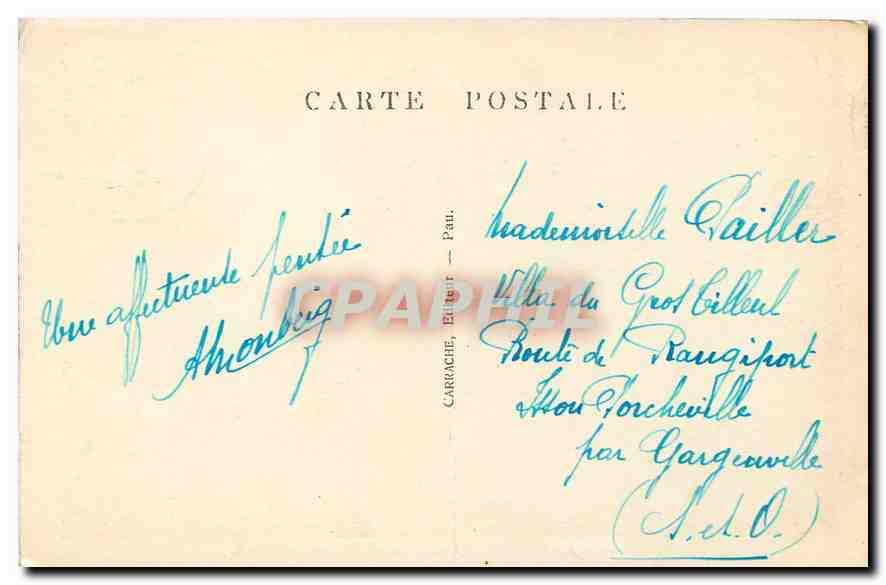 CARTE POSTALE
Une affectueuse pensée
AMonbeig
CARRACHE, Editeur — Pau.
Mademoiselle Pailler
Villa du Gros Tilleul
Route de Rangiport
Issou Porcheville
par Gargenville
(S. et. O.)
CPAPHIL